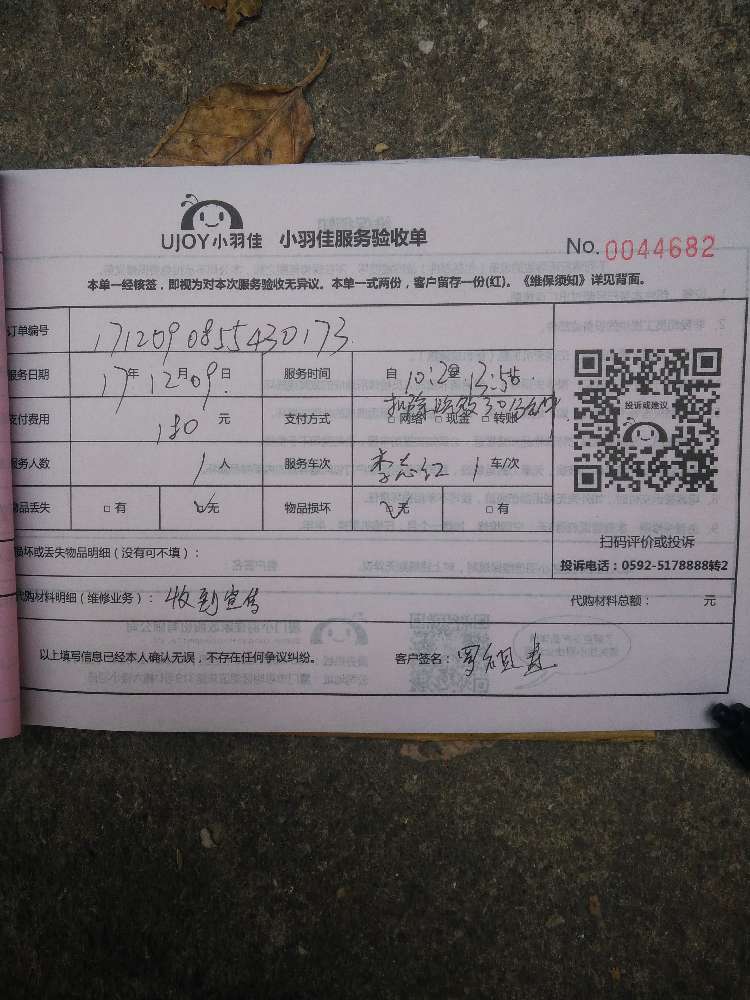 UJOY小羽佳 小羽佳服务验收单 No. 0044682
本单一经核签，即视为对本次服务验收无异议。本单一式两份，客户留存一份(红)。《维保须知》详见背面。
订单编号 171209085543 0173
服务日期 17年12月09日 服务时间 自10:12至13:56
扣除 30分钟
支付费用 180 元 支付方式 □网络 □现金 □转账
投诉或建议
服务人数 1 人 服务车次 李志红 1 车/次
物品丢失 □有 ☑无 物品损坏 ☑无 □有
扫码评价或投诉
损坏或丢失物品明细（没有可不填）：
投诉电话：0592-5178888转2
代购材料明细（维修业务）：收到宣传 代购材料总额： 元
以上填写信息已经本人确认无误，不存在任何争议纠纷。 客户签名：